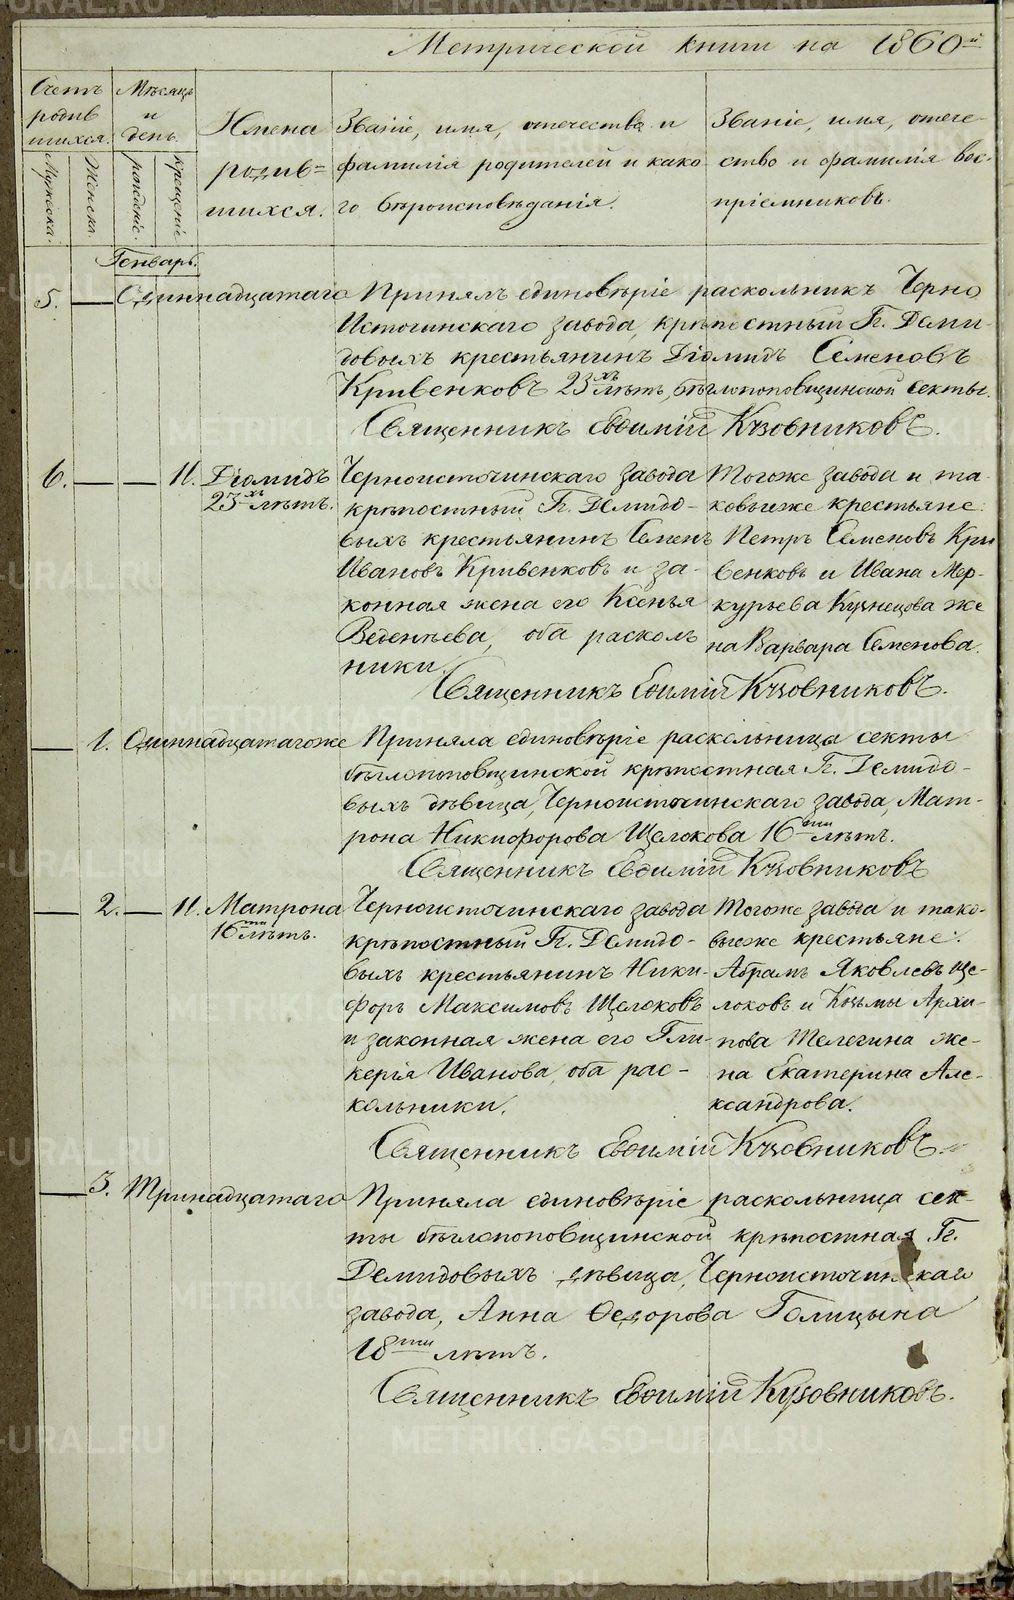 Метрической книги на 1860й
Счетъ
родив
шихся.
Мужеска.
Женска.
Мѣсяцъ
и
день.
рожденіе.
крещеніе
Имена
родив=
шихся.
Званіе, имя, отечество и
фамилія родителей и како
го вѣроисповѣданія.
Званіе, имя, отече-
ство и фамилія вос-
пріемниковъ.
Генварь.
5. — Одиннадцатаго Принялъ единовѣріе раскольникъ Черно
Источинскаго завода, крѣпостный Гг. Деми-
довыхъ крестьянинъ Діомидъ Семеновъ
Кривенковъ 23хъ лѣтъ, бѣглопоповщинской секты.
Священникъ Евфимій Кузовниковъ.
6. — — 11. Діомидъ
23хъ лѣтъ.
Черноисточинскаго завода
крѣпостный Гг. Демидо-
выхъ крестьянинъ Семенъ
Ивановъ Кривенковъ и за-
конная жена его Ксенья
Веденѣева, оба расколь
ники.
Тогоже завода и та-
ковыеже крестьяне:
Петръ Семеновъ Кри
венковъ и Ивана Мер-
курьева Кузнецова же
на Варвара Семенова.
Священникъ Евфимій Кузовниковъ.
— 1. Одиннадцатагоже Приняла единовѣріе раскольница секты
бѣглопоповщинской крѣпостная Гг. Демидо-
выхъ дѣвица, Черноисточинскаго завода, Мат-
рона Никифорова Щелокова 16ти лѣтъ.
Священникъ Евфимій Кузовниковъ
— 2. — 11. Матрона
16ти лѣтъ.
Черноисточинскаго завода
крѣпостный Гг. Демидо-
выхъ крестьянинъ Ники-
форъ Максимовъ Щелоковъ
и законная жена его Гли-
керія Иванова, оба рас-
кольники.
Тогоже завода и тако-
выеже крестьяне:
Абрамъ Яковлевъ Ще-
локовъ и Козьмы Архи-
пова Телегина же-
на Екатерина Але-
ксандрова.
Священникъ Евфимій Кузовниковъ.
— 3. Тринадцатаго Приняла единовѣріе раскольница сек-
ты бѣглопоповщинской крѣпостная Гг.
Демидовыхъ дѣвица, Черноисточинскаго
завода, Анна Ѳедорова Голицына
18ти лѣтъ.
Священникъ Евфимій Кузовниковъ.
METRIKI.GASO-URAL.RU